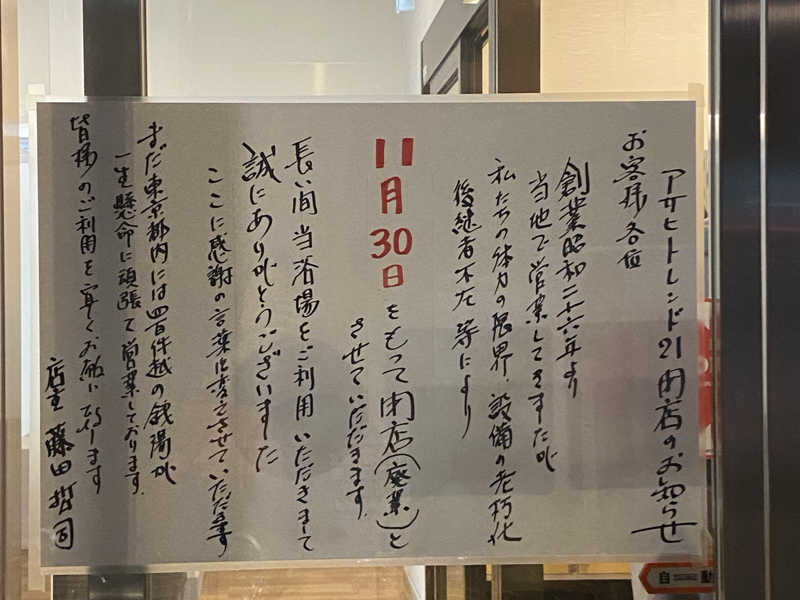 アサヒトレンド21閉店のお知らせ
お客様各位
創業昭和二十六年より
当地で営業してきましたが
私たちの体力の限界、設備の老朽化
後継者不在等により
11月30日をもって閉店(廃業)と
させていただきます。
長い間当浴場をご利用いただきまして
誠にありがとうございました
ここに感謝の言葉に変えさせていただきます
まだ東京都内には四百件越の銭湯が
一生懸命に頑張て営業しております。
皆様のご利用を宜しくお願い致します
店主 藤田哲司
自動